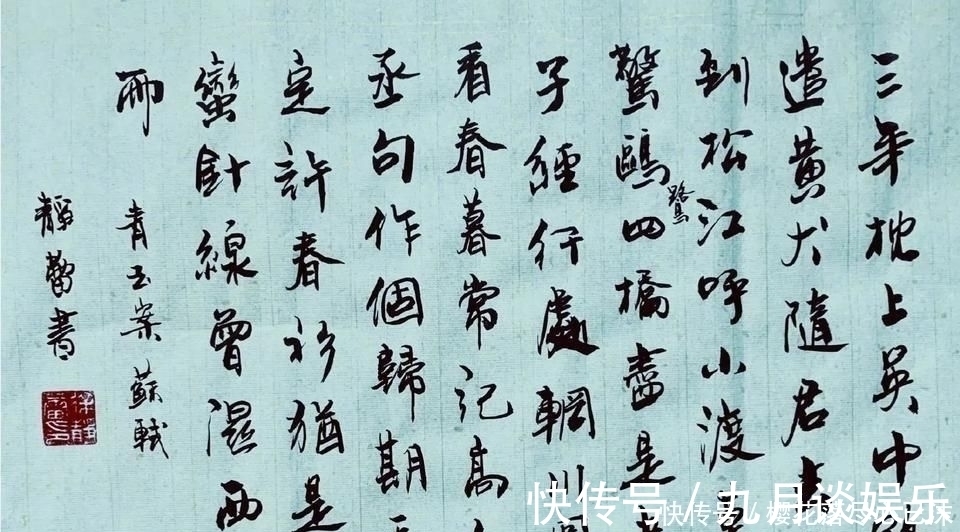 三年枕上吳中
遣黃犬隨君
到松江呼小渡
驚鷗鷺四橋盡是
子經行處輞川
看春暮常記高
丞句作個歸期
定許春衫猶是
蠻針線曾濕西
雨
青玉案 蘇軾
靜蕾書
快传号 / 九月谈娱乐
快传号 / 樱花落尽